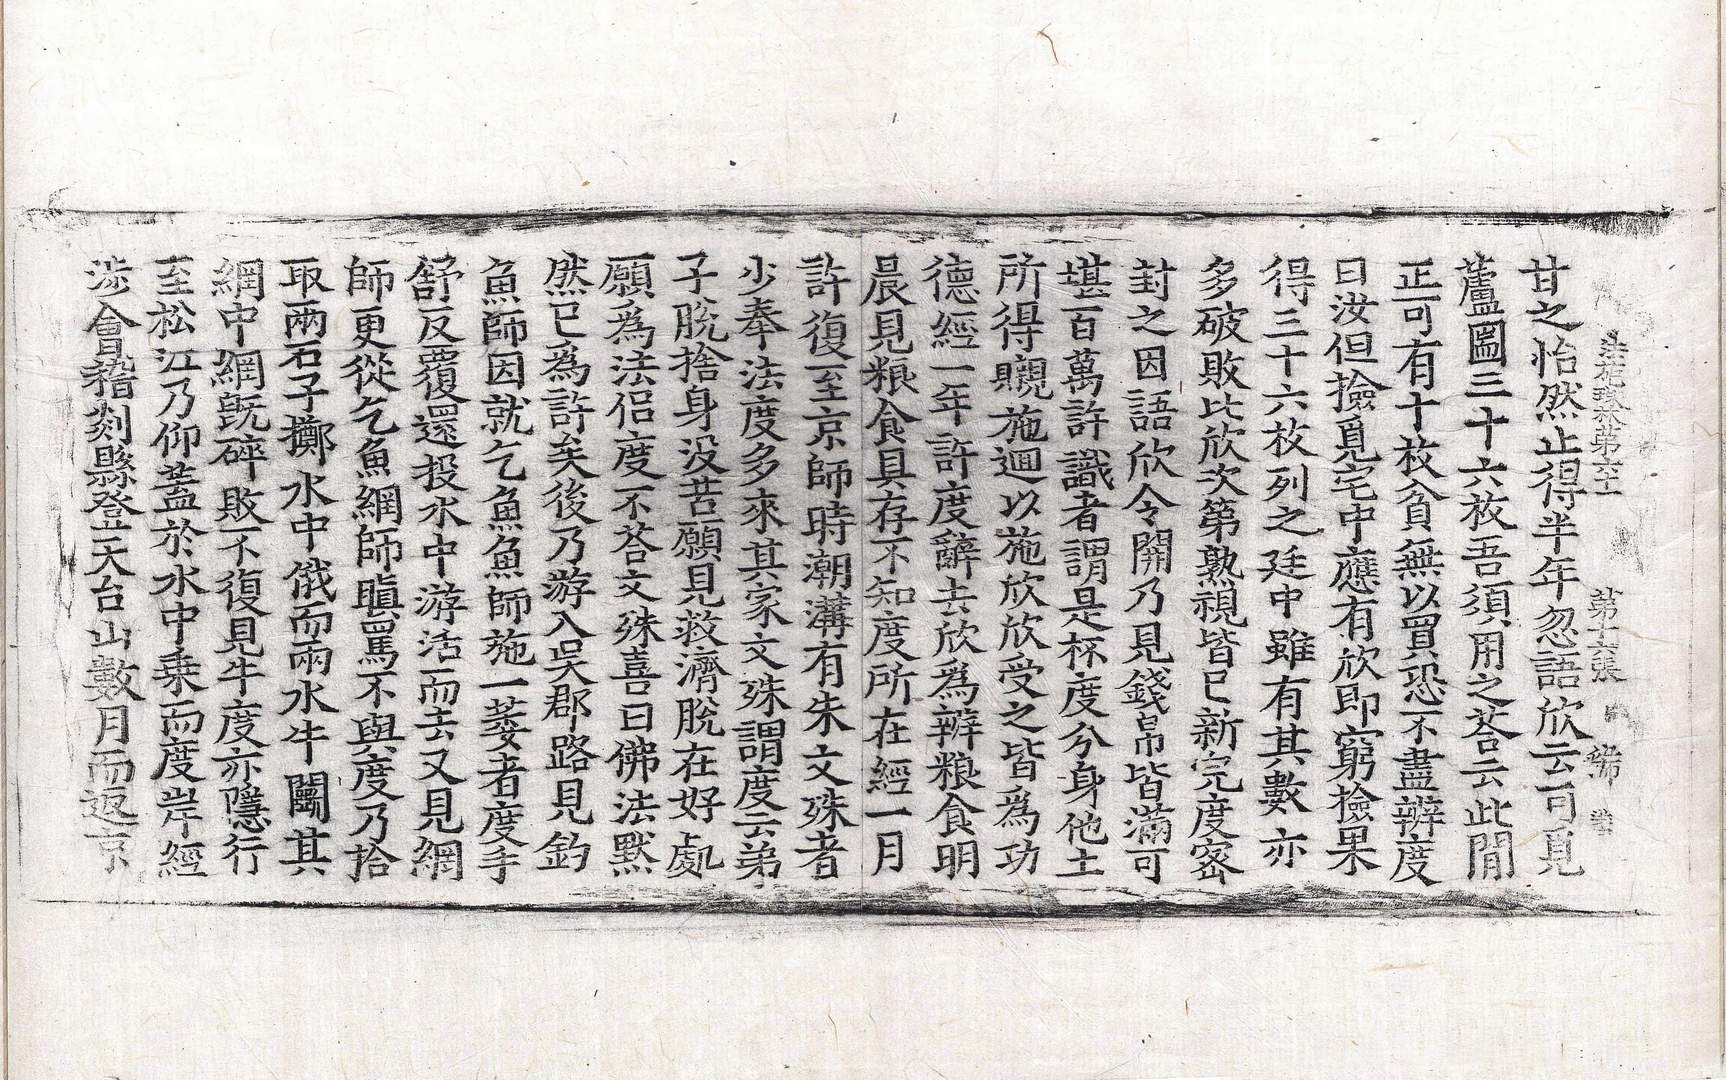 法苑珠林第六十一 第十六張 綿
甘之怡然止得半年忽語欣云可覓
蘆圌三十六枚吾須用之荅云此閒
正可有十枚貧無以買恐不盡辦度
曰汝但撿覓宅中應有欣即窮撿果
得三十六枚列之廷中雖有其數亦
多破敗比欣次第熟視皆已新完度密
封之因語欣令開乃見錢帛皆滿可
堪百萬許識者謂是杯度分身他土
所得䞋施迴以施欣欣受之皆爲功
德經一年許度辭去欣爲辦粮食明
晨見粮食具存不知度所在經一月
許復至京師時潮溝有朱文殊者
少奉法度多來其家文殊謂度云弟
子脫捨身沒苦願見救濟脫在好處
願爲法侶度不荅文殊喜曰佛法默
然已爲許矣後乃游入吳郡路見釣
魚師因就乞魚魚師施一萎者度手
舒反覆還投水中游活而去又見網
師更從乞魚網師瞋罵不與度乃拾
取兩石子擲水中俄而兩水牛鬪其
網中網旣碎敗不復見牛度亦隱行
至松江乃仰蓋於水中乗而度岸經
涉會稽剡縣登天台山數月而返京